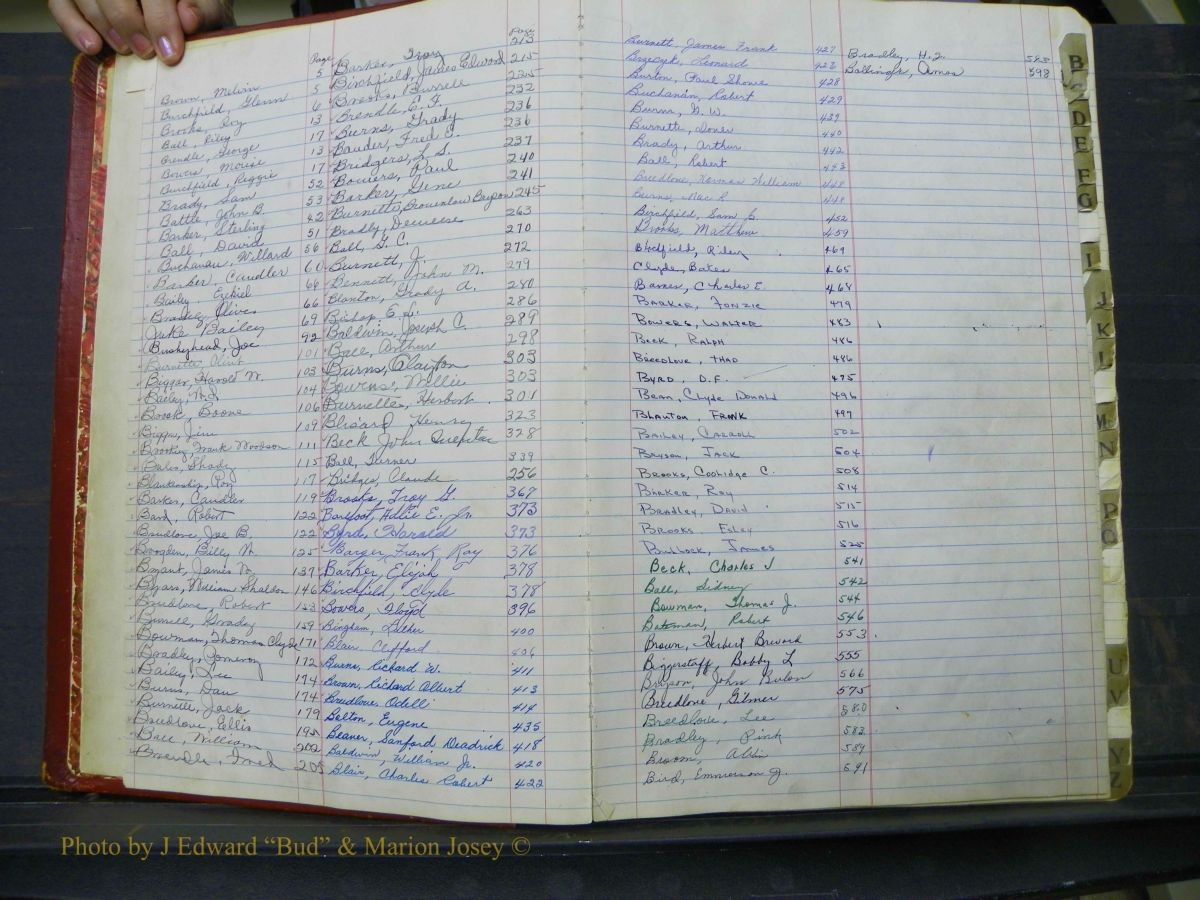 Page
Brown, Melvin 5
Burchfield, Glenn 5
Brooks, Roy 6
Ball, Riley 13
Brendle, George 17
Bowers, 13
Burchfield, Reggie 17
Brady, Sam 52
Battle, John B. 53
Barker, Sterling 42
Ball, David 51
Buchanan, Willard 56
Barker, Candler 60
Bailey, Ezekiel 64
Bradley, Oliver 66
Juke Bailey 69
Bushyhead, Joe 92
Burnette, 101
Biggar, Harold W. 103
Bailey, 104
Brook, Boone 106
Biggs, Jim 109
Brooking, Frank Woodson 111
Bales, Shady 115
Blankenship, Roy 117
Barker, Candler 119
Bard, Robert 122
Breedlove, Joe B. 122
Brogden, Billy N. 125
Bryant, James W. 137
Byars, William Sheldon 146
Breedlove, Robert 153
Burrell, Grady 159
Bowman, Thomas Clyde 171
Bradley, Pomeroy 172
Bailey, Lee 174
Burns, Dan 174
Burnette, Jack 179
Breedlove, Ellis 195
Ball, William 202
Brendle, Fred 205
Page
Barker, Troy 213
Birchfield, James Edward 215
Brooks, Burrell 225
Brendle, E. F. 232
Burns, Grady 236
Bauder, Fred E. 236
Bridgers, L. S. 237
Bowers, Paul 240
Barker, Gene 241
Burnette, Brownlow Bryson 245
Bradly, Deweese 263
Ball, G. C. 270
Burnett, J. 272
Bennett, John M. 279
Blanton, Grady A. 280
Bishop, E. J. 286
Baldwin, Joseph C. 289
Ball, Arthur 298
Burns, Clayton 303
Burns, Willie 303
Burnette, Herbert 301
Blizard, Henry 323
Beck John Quentin 328
Ball, Turner 339
Bridges, Claude 256
Brooks, Troy G. 367
Barefoot, Allie E. Jr. 373
Byrd, Harold 373
Barger, Frank, Ray 376
Barker, Elijah 378
Birchfield, Clyde 378
Bowers, Floyd 396
Bingham, Luther 400
Blair, Clifford 406
Burns, Richard W. 411
Brown, Richard Albert 413
Breedlove, Odell 414
Bolton, Eugene 435
Beaver, Sanford Deadrick 418
Baldwin, William Jr. 420
Blair, Charles Robert 422
Burnett, James Frank 427
Brzezyk, Leonard 423
Burton, Paul Shows 428
Buchanan, Robert 429
Burns, G. W. 439
Burnette, 440
Brady, Arthur 442
Ball, Robert 443
Breedlove, Herman William 448
Burns, Mac R 448
Birchfield, Sam 452
Brooks, Matthew 459
Birdfield, Riley 469
Clyde, Bates 465
Barnes, Charles E. 468
Barker, Fonzie 479
Bowers, Walter 483
Beck, Ralph 486
Breedlove, Thad 486
Byrd, D.F. 475
Bean, Clyde Donald 496
Blanton, Frank 497
Bailey, Carroll 502
Bryson, Jack 504
Brooks, Coolidge C. 508
Barker, Ray 514
Bradley, David 515
Brooks, Esley 516
Bullock, James 525
Beck, Charles J 541
Ball, Sidney 542
Bowman, Thomas J. 544
Bateman, Robert 546
Brown, Herbert Brevard 553
Biggerstaff, Bobby L 555
Bryson, John Bulon 566
Breedlove, Gilmer 575
Breedlove, Lee 580
Bradley, Pink 583
Broom, 589
Bird, Emmerson J. 591
Bradley, H.J. 595
Ballinger, Amos 598
B
D
E
F
G
I
J
K
L
M
N
P
Q
U
V
Y
Z
Photo by J Edward “Bud” & Marion Josey ©